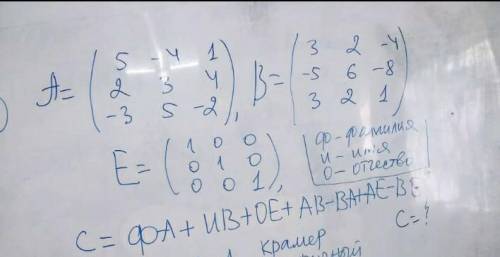 A = ( 5 -4 1 ; 2 3 4 ; -3 5 -2 ), B = ( 3 2 -4 ; -5 6 -8 ; 3 2 1 )
E = ( 1 0 0 ; 0 1 0 ; 0 0 1 ),
ф - фамилия
и - имя
о - отчество
C = ФА + ИВ + ОЕ + АВ - ВА + АЕ - ВЕ
C = ?
крамер